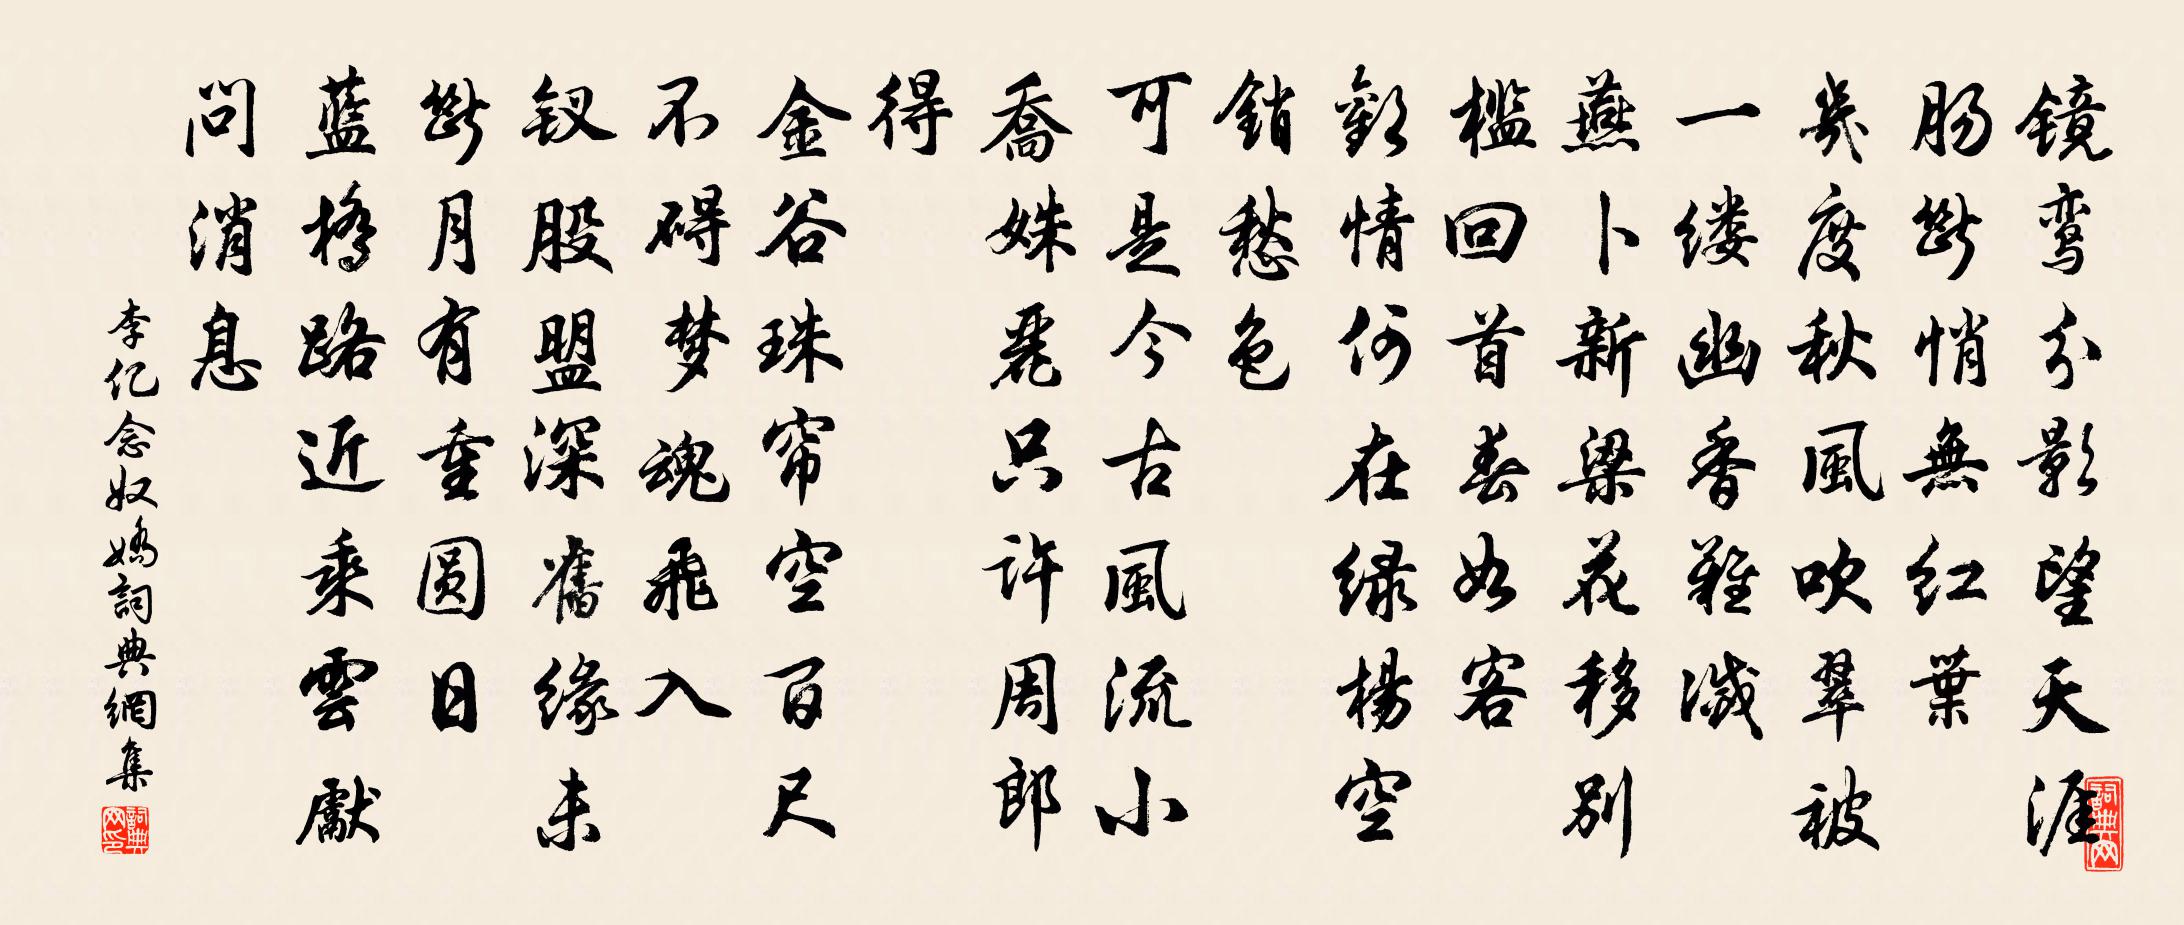 镜鸾分影望天涯
肠斷悄無红葉
幾度秋風吹翠被
一缕幽香難滅
燕卜新梁花移别
槛回首春如客
歡情何在绿楊空
銷愁色
可是今古風流小
喬姝麗只許周郎
得
金谷珠帘空百尺
不碍梦魂飛入
钗股盟深舊缘未
斷月有重圆日
藍橋路近乘雲獻
問消息
李亿念奴嬌詞典網集
詞典网
詞典网印